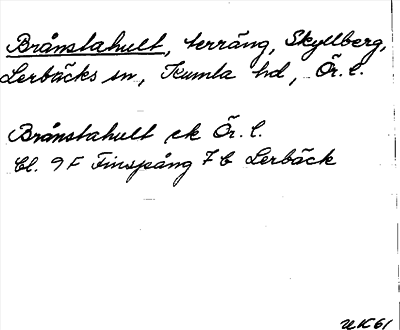 Brånstahult, terräng, Skyllberg,
Lerbäcks sn, Kumla hd, Ör. l.
Brånstahult ek Ör. l.
Bl. 9 F Finspång 7 b Lerbäck
UK 61